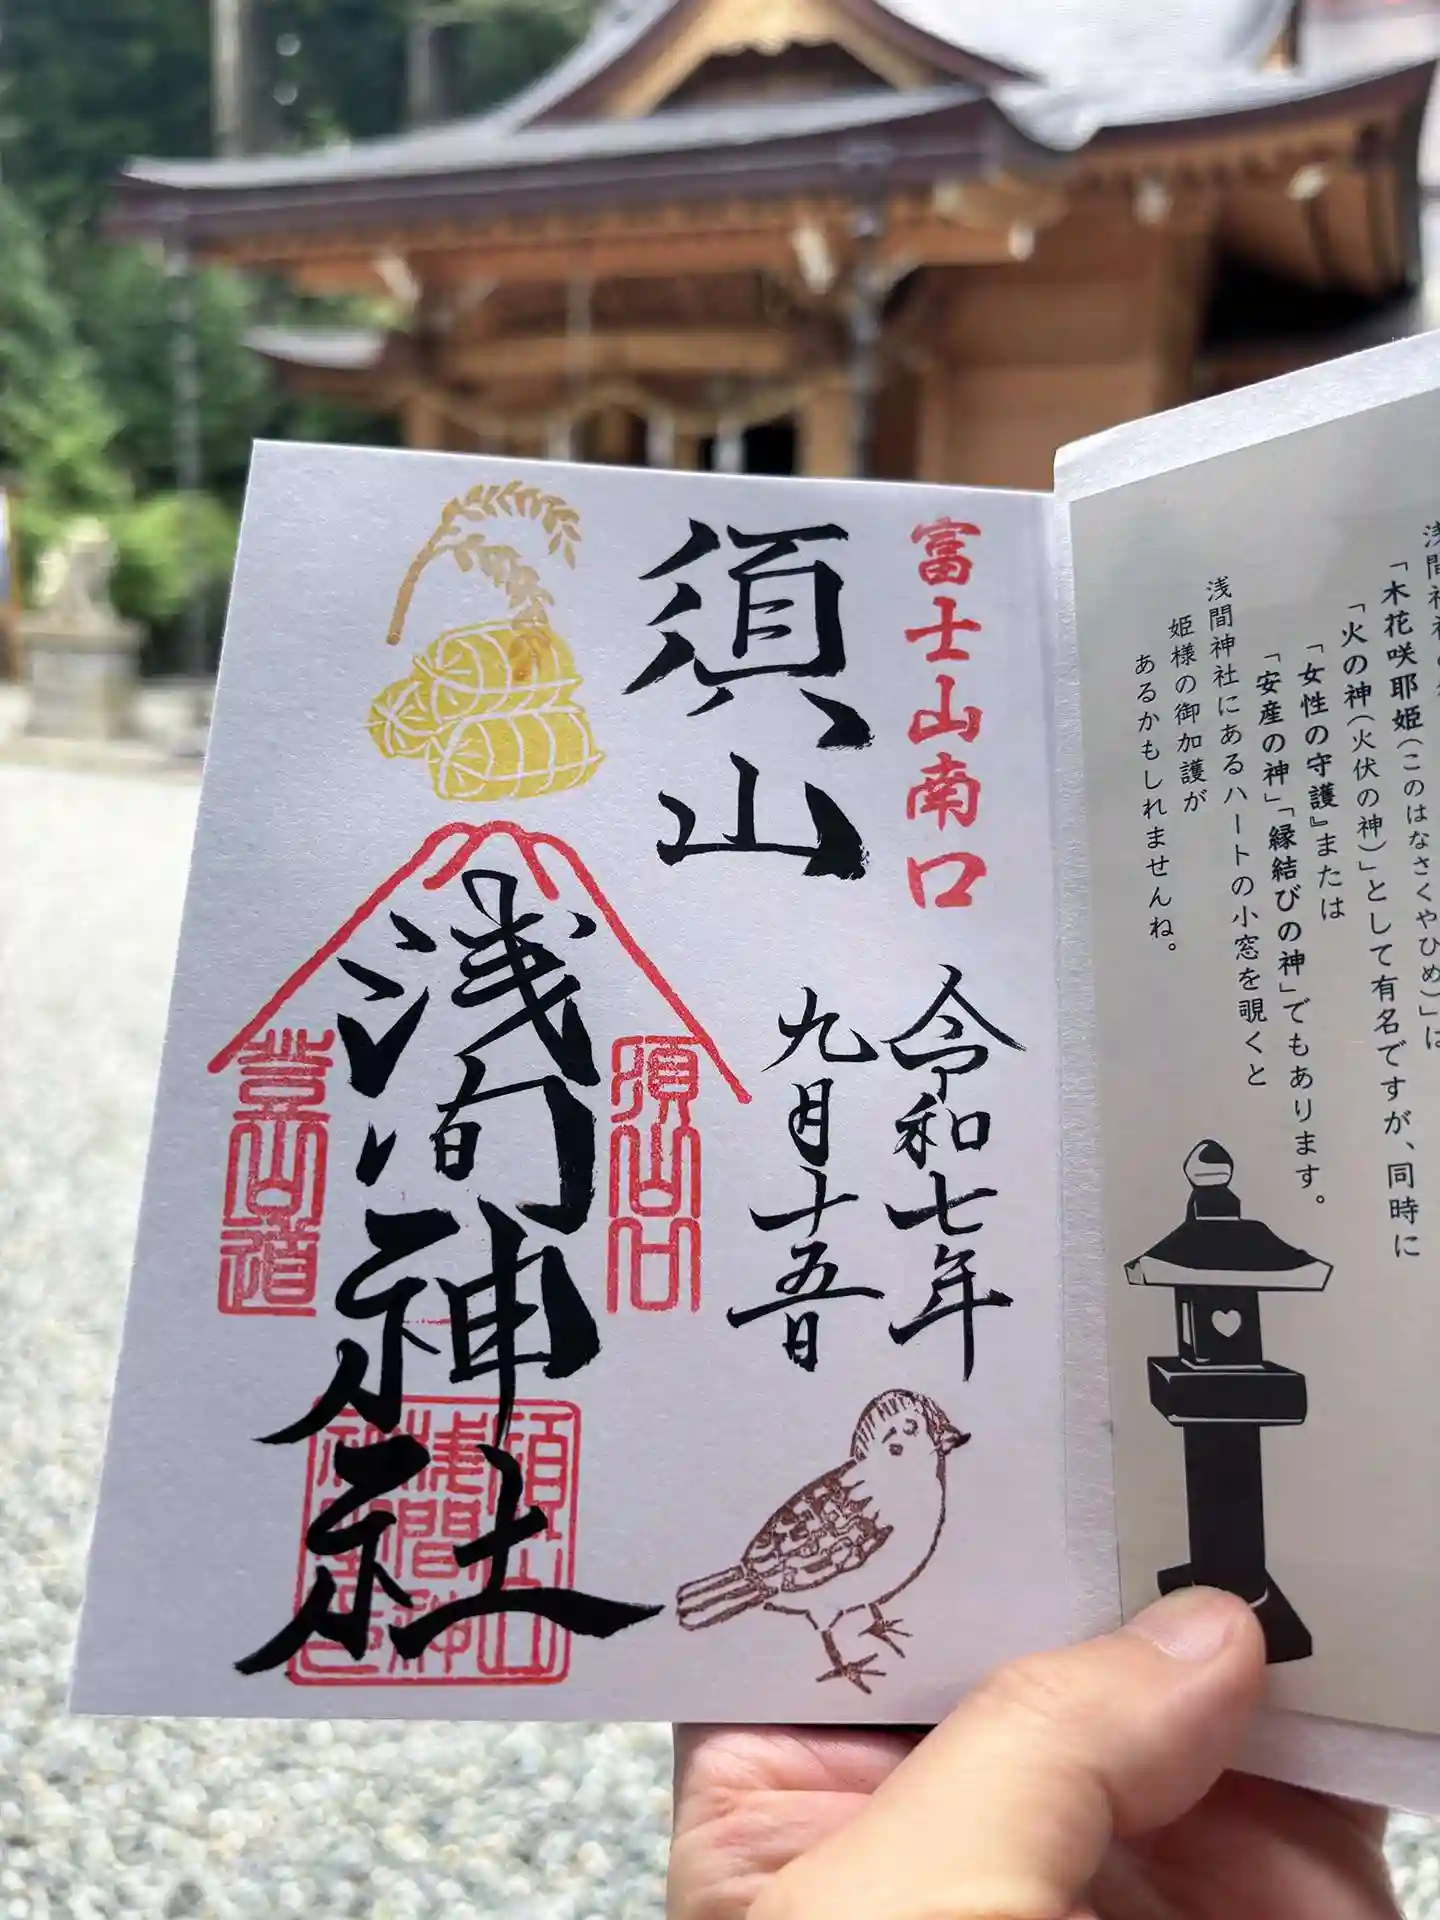 「木花咲耶姫(このはなさくやひめ)」は
「火の神(火伏の神)」として有名ですが、同時に
「女性の守護』または
「安産の神」「縁結びの神」でもあります。
浅間神社にあるハートの小窓を覗くと
姫様の御加護が
あるかもしれませんね。
富士山南口
須山
浅間神社
令和七年
九月十五日
須山口
登山道